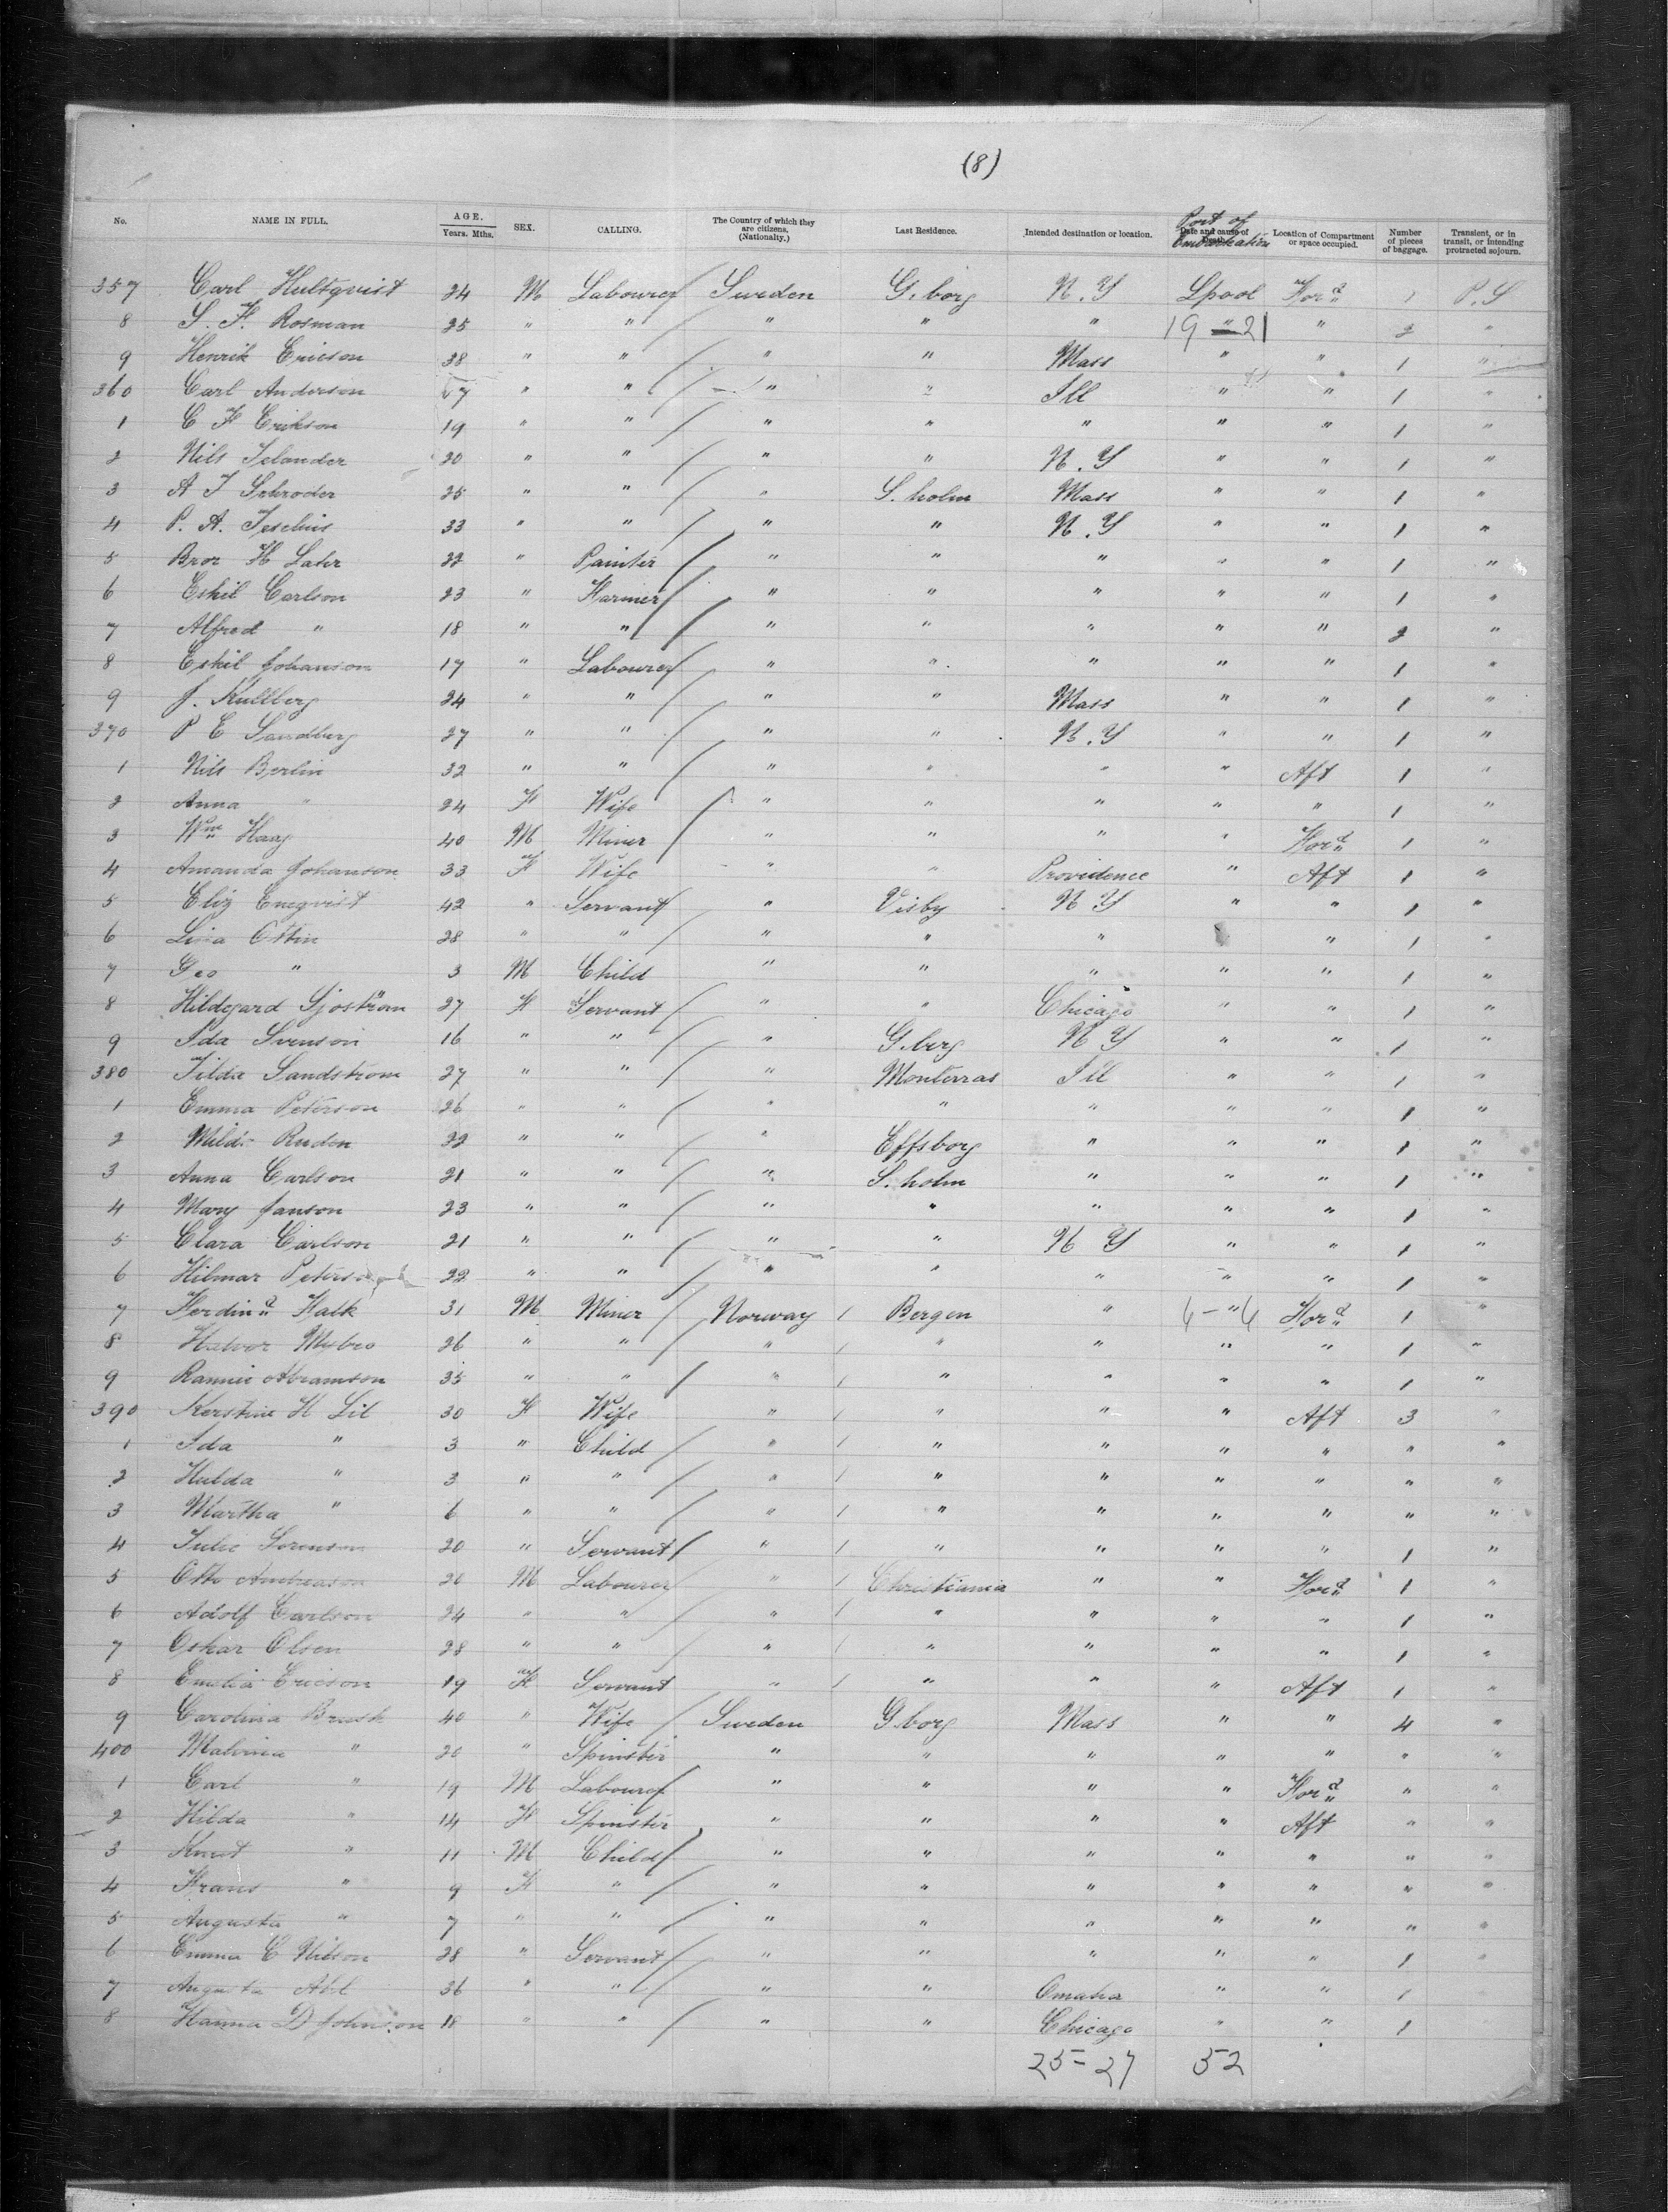 (8)
No. NAME IN FULL. AGE. Years. Mths. SEX. CALLING. The Country of which they are citizens. (Nationalty.) Last Residence. Intended destination or location. Port of Embarkation Date and cause of Death. Location of Compartment or space occupied. Number of pieces of baggage. Transient, or in transit, or intending protracted sojourn.
357 Carl Hultqvist 24 M Labourer Sweden G.borg N.Y Lpool Ford 1 P.S
8 S. F. Rosman 25 " " " " " 19 - " 21 " 2 "
9 Henrik Ericson 38 " " " " Mass " " 1 "
360 Carl Anderson 67 " " " " Ill " " 1 "
1 C F Erikson 19 " " " " " " " 1 "
2 Nils Selander 20 " " " " N.Y " " 1 "
3 A J Schroder 25 " " " S.holm Mass " " 1 "
4 P. A. 33 " " " " N.Y " " 1 "
5 Bror H 22 " Painter " " " " " 1 "
6 Eskil Carlson 23 " Farmer " " " " " 1 "
7 Alfred " 18 " " " " " " " 2 "
8 Eskil Johanson 17 " Labourer " " " " " 1 "
9 J. Kullberg 24 " " " " Mass " " 1 "
370 P E Sandberg 27 " " " " N.Y " " 1 "
1 Nils Berlin 32 " " " " " " Aft 1 "
2 Anna " 24 F Wife " " " " " 1 "
3 Wm Haag 40 M Miner " " " " Ford 1 "
4 Amanda Johanson 33 F Wife " " Providence " Aft 1 "
5 Eliz Enegvist 42 " Servant " Visby N Y " " 1 "
6 Lina Ostin 28 " " " " " " 1 "
7 Geo " 3 M Child " " " " " 1 "
8 Hildegard Sjöström 27 F Servant " " Chicago " " 1 "
9 Ida Svenson 16 " " " G.berg N Y " " 1 "
380 Tilda Sandstrom 27 " " " Monterras Ill " " 1 "
1 Emma Peterson 26 " " " " " " " 1 "
2 Rudon 22 " " " Effsborg " " " 1 "
3 Anna Carlson 21 " " " S.holm " " " 1 "
4 Mary Janson 23 " " " " " " " 1 "
5 Clara Carlson 21 " " " " N Y " " 1 "
6 Hilmar Peterson 22 " " " " " " " 1 "
7 Ferdind Falk 31 M Miner Norway Bergen " 6 - " 6 Ford 1 "
8 Halvor Mybro 26 " " " " " " " 1 "
9 Abramson 35 " " " " " " " 1 "
390 Kerstine H Lil 30 F Wife " " " " Aft 3 "
1 Ida " 3 " Child " " " " " " "
2 Hulda " 3 " " " " " " " " "
3 Martha " 6 " " " " " " " " "
4 Julie Sorenson 20 " Servant " " " " " 1 "
5 Otto Andreason 20 M Labourer " Christiania " " Ford 1 "
6 Adolf Carlson 24 " " " " " " " 1 "
7 Oskar Olsen 28 " " " " " " " 1 "
8 Emelia Ericson 19 F Servant " " " " Aft 1 "
9 Carolina Brask 40 " Wife Sweden G.borg Mass " " 4 "
400 Malvina " 20 " Spinster " " " " " " "
1 Carl " 19 M Labourer " " " " Ford " "
2 Hilda " 14 F Spinster " " " " Aft " "
3 Knut " 11 M Child " " " " " " "
4 Frans " 9 F " " " " " " " "
5 Augusta " 7 " " " " " " " " "
6 Emma C Nilson 28 " Servant " " " " " 1 "
7 Augusta Abl 36 " " " " Omaha " " 1
8 Hanna D Johnson 18 " " " " Chicago " " 1
25 - 27 52